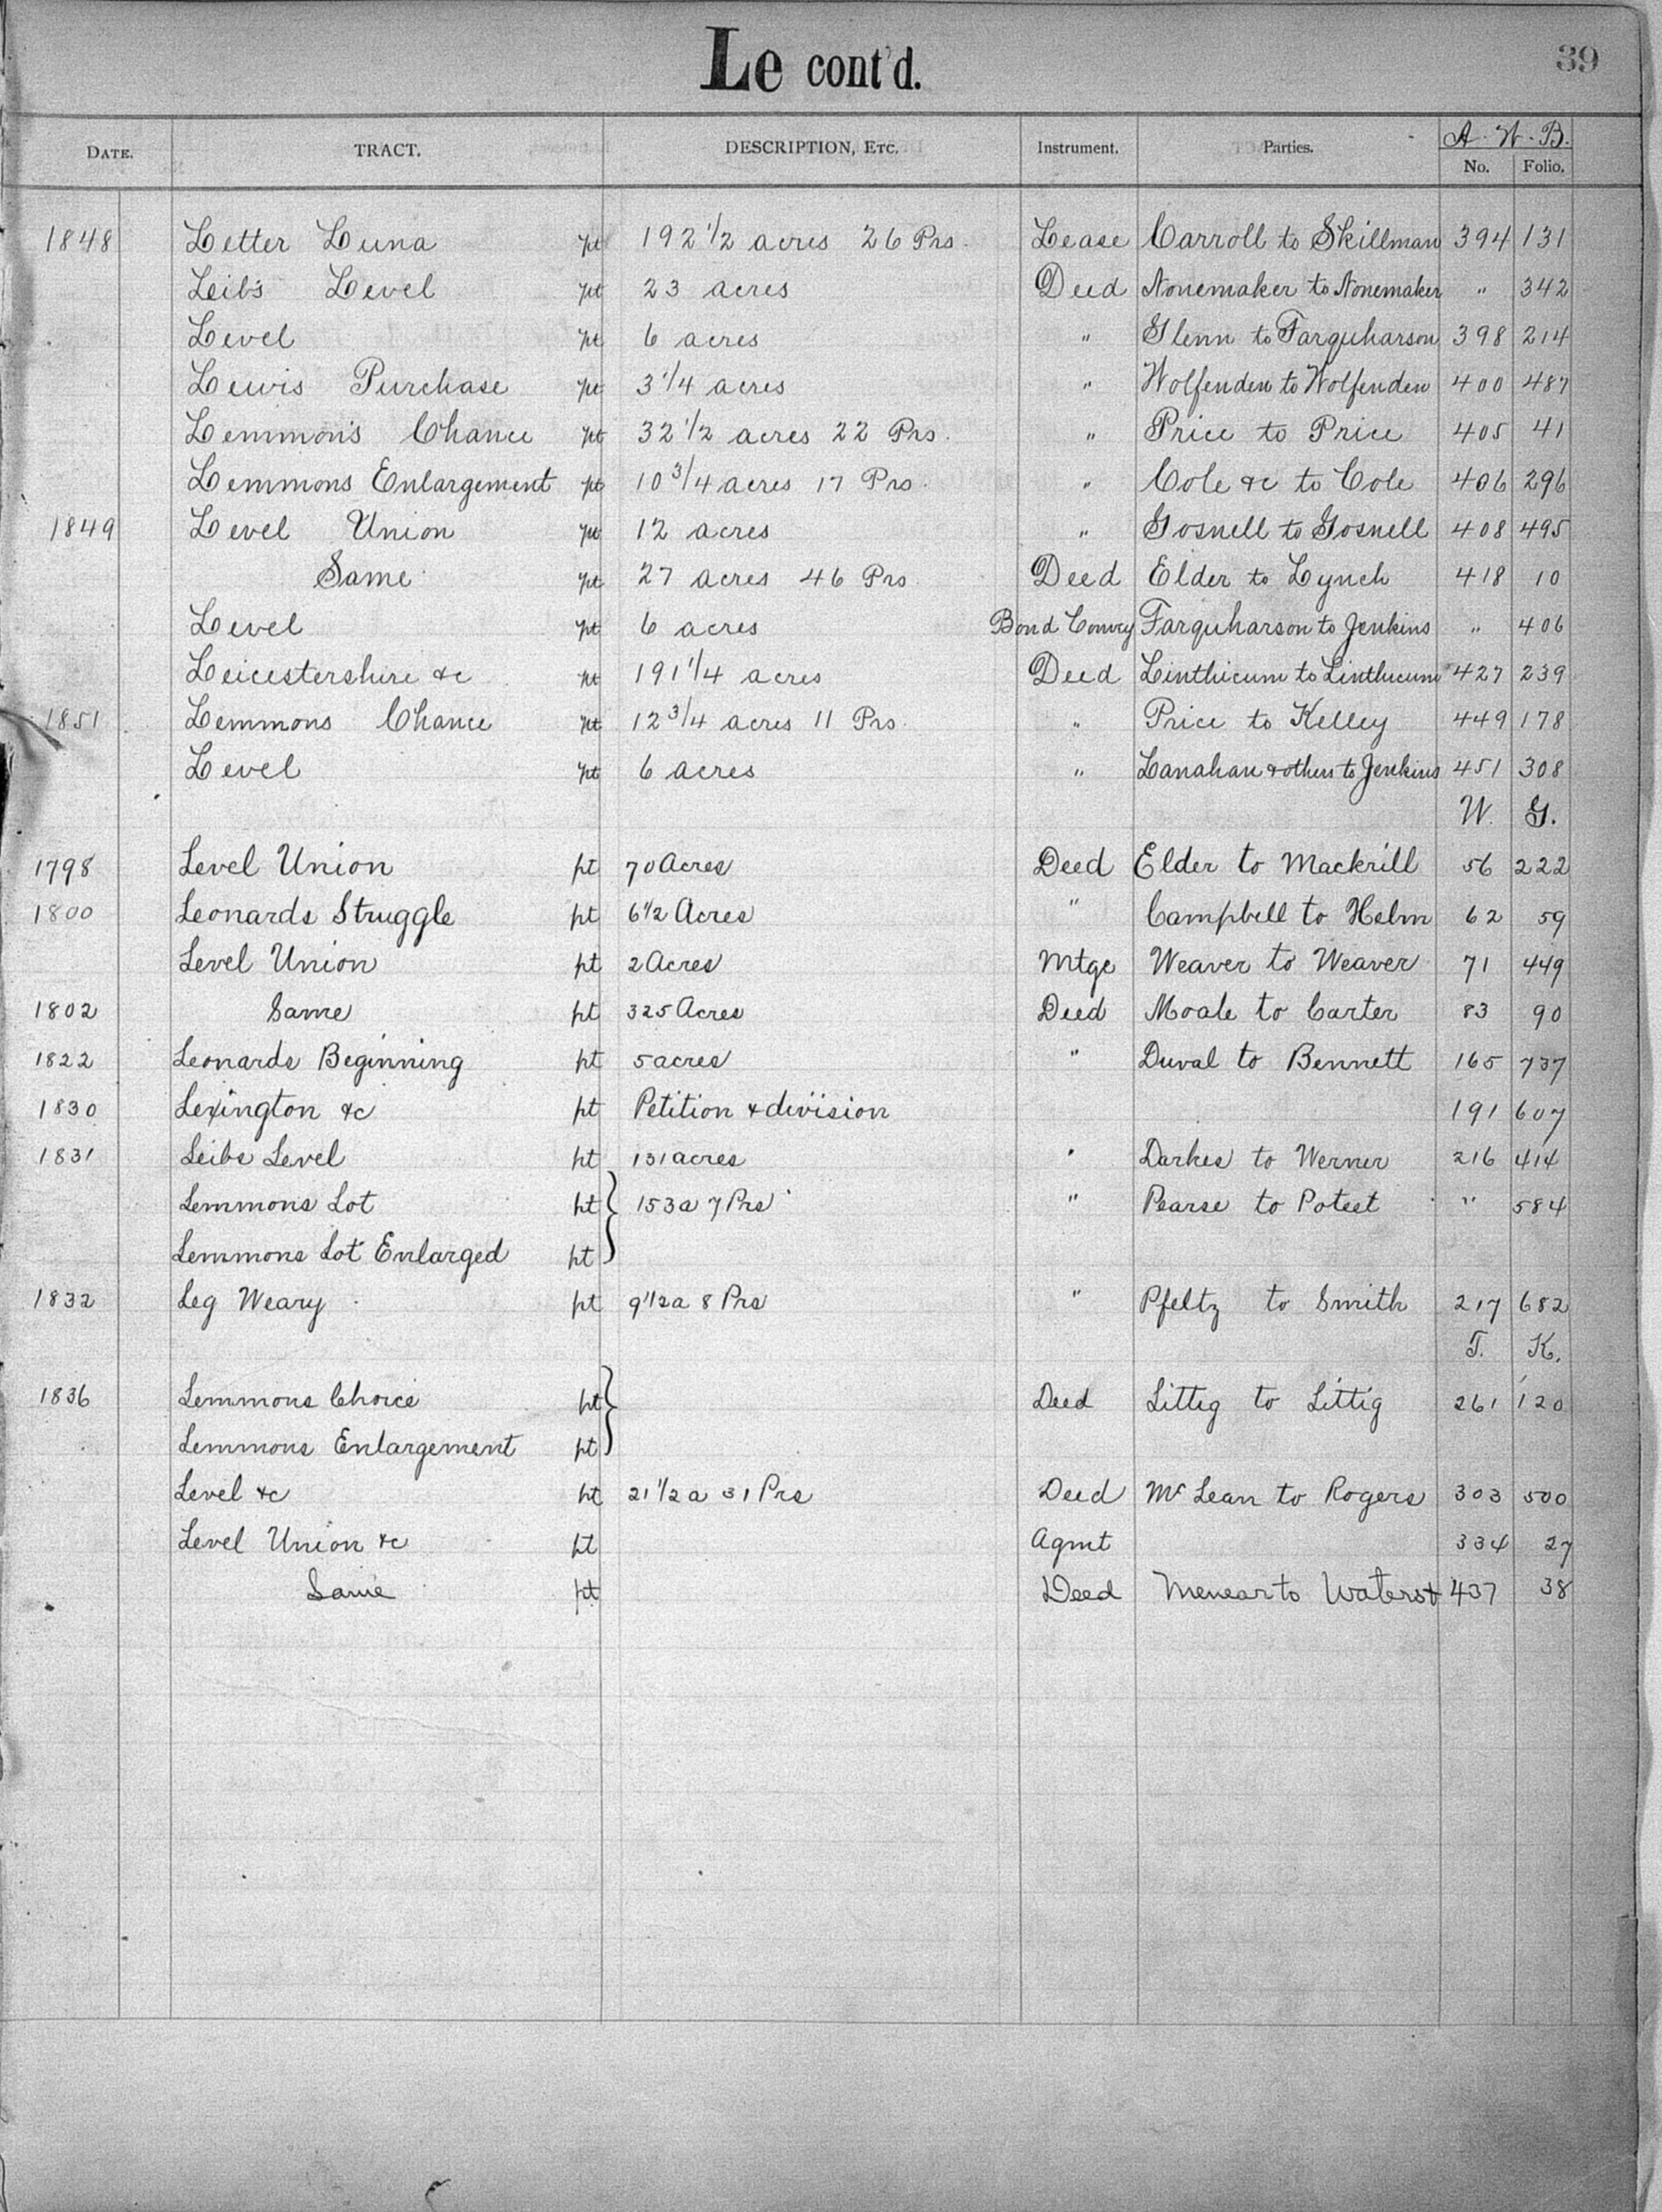 Le cont'd.
39
DATE. TRACT. DESCRIPTION, ETC. Instrument. Parties. A. W. B.
No. Folio.
1848 Letter Luna pt 192 1/2 acres 26 Prs. Lease Carroll to Skillman 394 131
Leib's Level pt 23 acres Deed Nonemaker to Nonemaker " 342
Level pt 6 acres " Glenn to Farquharson 398 214
Lewis Purchase pt 3 1/4 acres " Wolfenden to Wolfenden 400 487
Lemmon's Chance pt 32 1/2 acres 22 Prs. " Price to Price 405 41
Lemmons Enlargement pt 10 3/4 acres 17 Prs. " Cole &c to Cole 406 296
1849 Level Union pt 12 acres " Gosnell to Gosnell 408 495
Same pt 27 acres 46 Prs Deed Elder to Lynch 418 10
Level pt 6 acres Bond Convey Farquharson to Jenkins " 406
Leicestershire &c pt 191 1/4 acres Deed Linthicum to Linthicum 427 239
1851 Lemmons Chance pt 12 3/4 acres 11 Prs. " Price to Kelley 449 178
Level pt 6 acres " Lanahan & others to Jenkins 451 308
W. G.
1798 Level Union pt 70 Acres Deed Elder to Mackrill 56 222
1800 Leonards Struggle pt 6 1/2 Acres " Campbell to Helm 62 59
Level Union pt 2 Acres Mtge Weaver to Weaver 71 449
1802 Same pt 325 Acres Deed Moale to Carter 83 90
1822 Leonards Beginning pt 5 acres " Duval to Bennett 165 737
1830 Lexington &c pt Petition & division 191 607
1831 Leibs Level pt 131 acres " Darkes to Werner 216 414
Lemmons Lot pt } 153 a 7 Prs " Pearse to Poteet " 584
Lemmons Lot Enlarged pt
1832 Leg Weary pt 9 1/2 a 8 Prs " Pfeltz to Smith 217 682
T. K.
1836 Lemmons Choice pt } Deed Littig to Littig 261 120
Lemmons Enlargement pt
Level &c pt 21 1/2 a 31 Prs Deed McLean to Rogers 303 500
Level Union &c pt Agmt 334 27
Same pt Deed Menear to Waters & 437 38